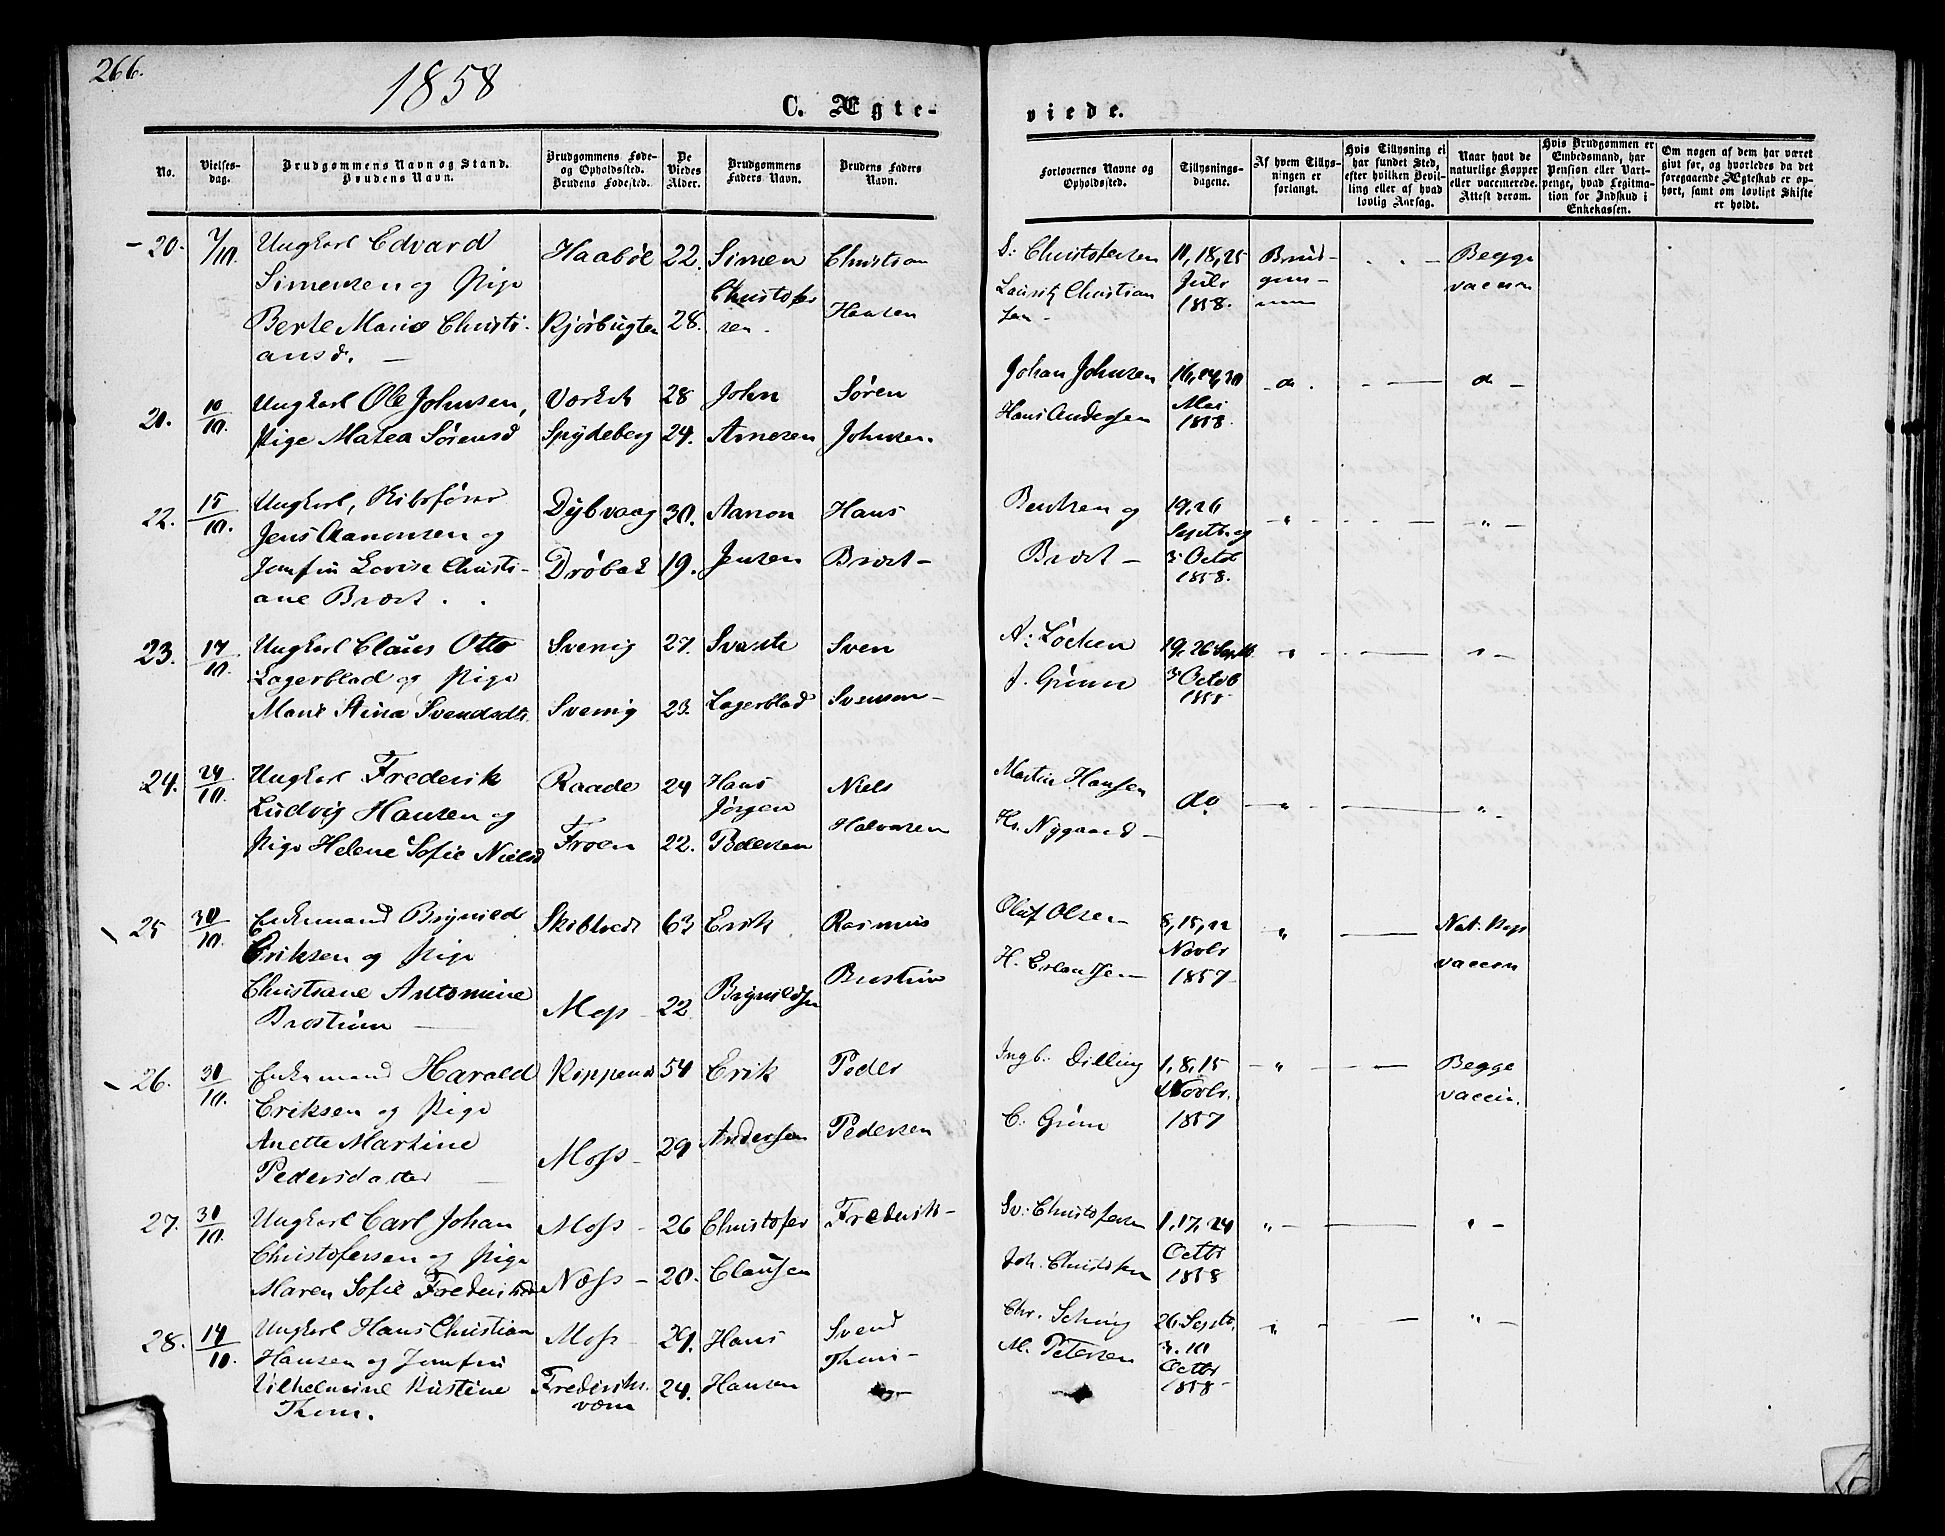 266.
1858
C. Ægte-
viede.
No.
Vielses-
dag.
Brudgommens Navn og Stand.
Brudens Navn.
Brudgommens Føde-
og Opholdssted.
Brudens Fødested.
De
Viedes
Alder.
Brudgommens
Faders Navn.
Brudens Faders
Navn.
Forlovernes Navne og
Opholdssted.
Tillysnings-
dagene.
Af hvem Tillys-
ningen er
forlangt.
Hvis Tillysning ei
har fundet Sted,
efter hvilken Bevil-
ling eller af hvad
lovlig Aarsag.
Naar havt de
naturlige Kopper
eller vaccinerede.
Attest derom.
Hvis Brudgommen er
Embedsmand, har
Pension eller Vart-
penge, hvad Legitima-
tion for Indskud i
Enkekassen.
Om nogen af dem har været
gift før, og hvorledes da det
foregaaende Ægteskab er op-
hørt, samt om lovligt Skifte
er holdt.
20. 7/10. Ungkarl Edvard Haabøl 22. Simen Christian
Simensen og Pige Christofer Hansen
Berte Marie Christi- 28. sen.
ansd.
S: Christofersen 11, 18, 25 Brud- Begge
Lauritz Christian Juli gom- vaccin
sen 1858. men
21. 10/10. Ungkarl Ole Johnsen, 28 John Søren
Pige Matea Sørensd Spydeberg 24. Arnesen Johnsen.
Johan Johnsen do do
Hans Andersen Mai
1858.
22. 15/10. Ungkarl, Dybvaag 30. Aanon Hans
Jens Aanonsen og
Jomfru Lovise Christi- Drøbak 19. Jensen
ane
Bentsen og 19, 26
Septb. og
3 Octob
1858.
23. 17/10. Ungkarl Claus Otto Sverig 27. Svante Sven
Lagerblad og Pige
Marie Stina Svendsdtr. Sverig 23. Lagerblad Svenson
A: Løchen 19, 26 Septb.
J. Grimm 3 Octob
1858
24. 24/10. Ungkarl Frederik Raade 24 Hans Niels
Ludvig Hansen og Jørgen Halvorsen
Pige Helene Sofie Nielsd Froen 22. Pedersen
Martin Hansen do
Hs. Nygaard
25 30/10. Enkemand Brynild Skibtvedt 63 Erik Rasmus
Eriksen og Pige
Christiane Antomine Moss 22 Brynildsen
Brostrøm
Oluf Olsen 8, 15, 22 Nat. Kop
H. Erlandsen Novbr vaccin
1857
26. 30/10. Enkemand Harald 54 Erik Peder
Eriksen og Pige
Anette Martine Moss 29 Andersen Pedersen
Pedersdatter
Ingb. Dilling 1, 8, 15 Begge
C. Grim Novbr. vaccin.
1857
27. 30/10. Ungkarl Carl Johan Moss 26 Christofer Frederik
Christofersen og Pige
Maren Sofie 20. Clausen
Sv: Christofersen 1, 17, 24
Octbr
1858
28. 14/10. Ungkarl Hans Christian Moss 29. Hans Svend
Hansen og Jomfru
Vilhelmine Kristine Frederiks. 24. Hansen
Thom. værn
Chr. 26 Septb.
M. Petersen 3. 10
Octbr
1858